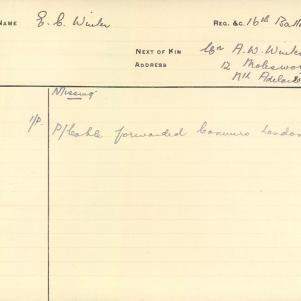 NAME E. C. Winter REG. &C. 16th Batt
NEXT OF KIN A. W. Winter
ADDRESS 12 Moleswor
Nth Adelaid
Missing
1/P. P/Cable forwarded London